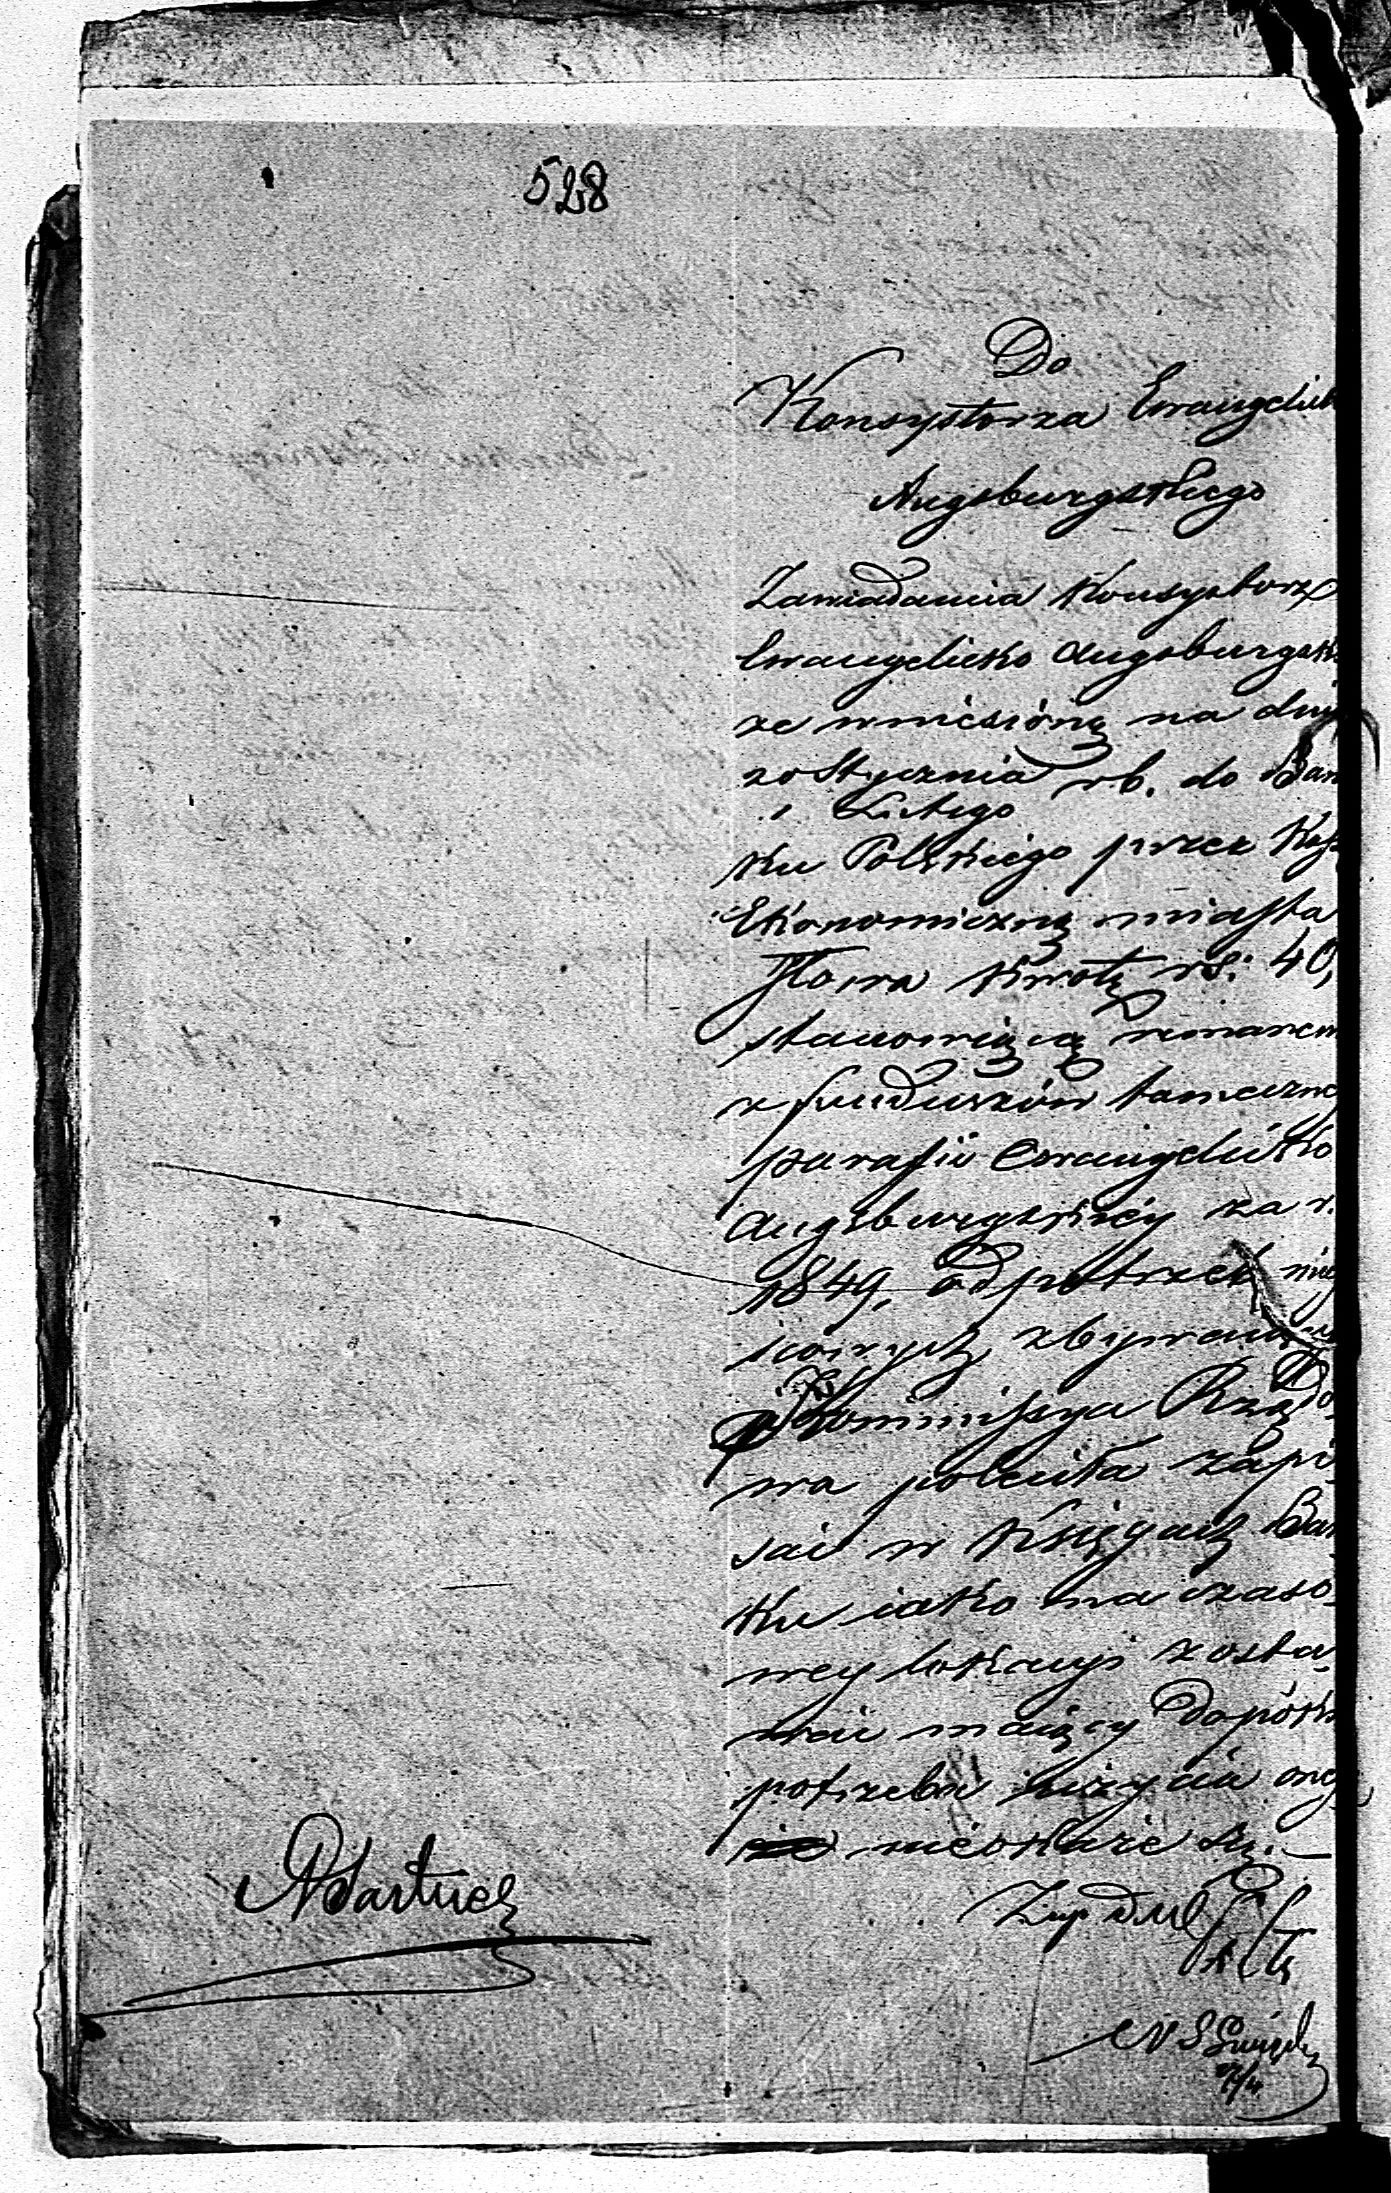 528
Do
Konsystorza Ewangelick
Augsburgskiego
Zawiadamia Konsystorz
Ewangelicko Augsburgsk
ze wniesióną na dniu
20 Stycznia rb. do Ban
1 Lutego
ku Polskiego przez Kass
Ekonomiczną miasta
Iłowa kwotę rs: 40,
stanowiącą remanen
z funduszów tameczne
parafii Ewangelicko
Augsburgskiey za r.
1849, od potrzeb miey
scowych zbywaiącą
Kommissya Rządo
wa poleciła zapi
sać w Księgach Ban
ku iako na czaso
wey lokacyi zosta
wać maiący dopóki
potrzeba użycia oney
nieokaże się.
NB Bartuch